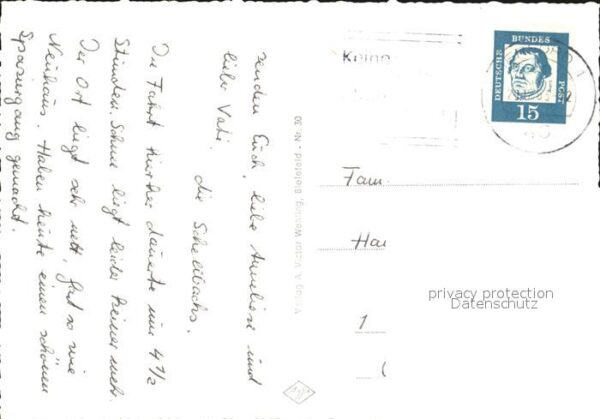 senden Euch, liebe Anneliese und
lieber Vati,
die Scheilbachs.
Die Fahrt hierher dauerte nur 4 1/2
Stunden. Schnee liegt leider keiner mehr.
Der Ort liegt sehr nett, fast so wie
Neuhaus. Haben heute einen schönen
Spaziergang gemacht.
Verlag V. Victor, Bielefeld · Nr. 30
Keine
DEUTSCHE BUNDES POST
15
Fam.
Hau
1
privacy protection
Datenschutz